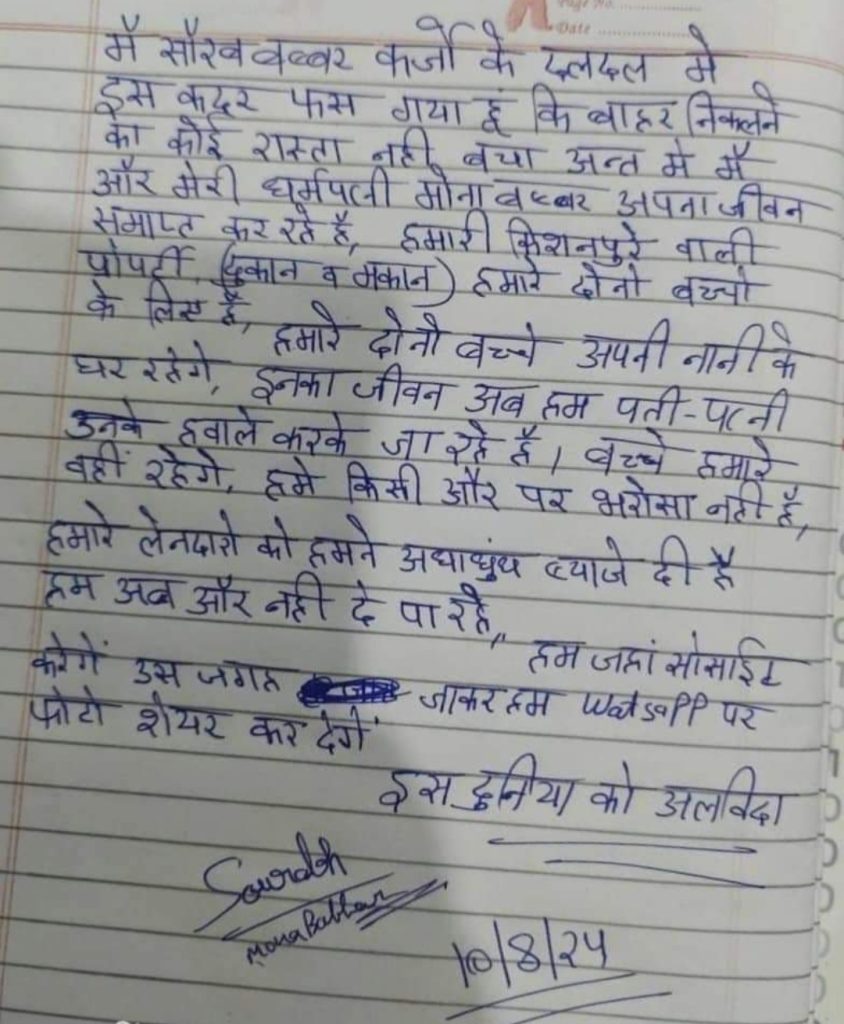 Page No.
Date
मैं सौरव बब्बर कर्जो के दलदल मे
इस कदर फस गया हूं कि बाहर निकलने
का कोई रास्ता नही बचा अन्त मे मैं
और मेरी धर्मपत्नी मोना बब्बर अपना जीवन
समाप्त कर रहे है, हमारी किशनपुरे वाली
प्रोपर्टी (दुकान व मकान) हमारे दोनो बच्चो
के लिए है, हमारे दोनो बच्चे अपनी नानी के
घर रहेगे, इनका जीवन अब हम पती-पत्नी
उनके हवाले करके जा रहे है। बच्चे हमारे
वहीं रहेगे, हमे किसी और पर भरोसा नही है,
हमारे लेनदारो को हमने अधाधुंध ब्याजे दी है
हम अब और नही दे पा रहे,, हम जहां सोसाईट
करेगें उस जगह जाकर हम Watsapp पर
फोटो शेयर कर देगें
इस दुनिया को अलविदा
Sourabh
Mona Babbar
10/8/24